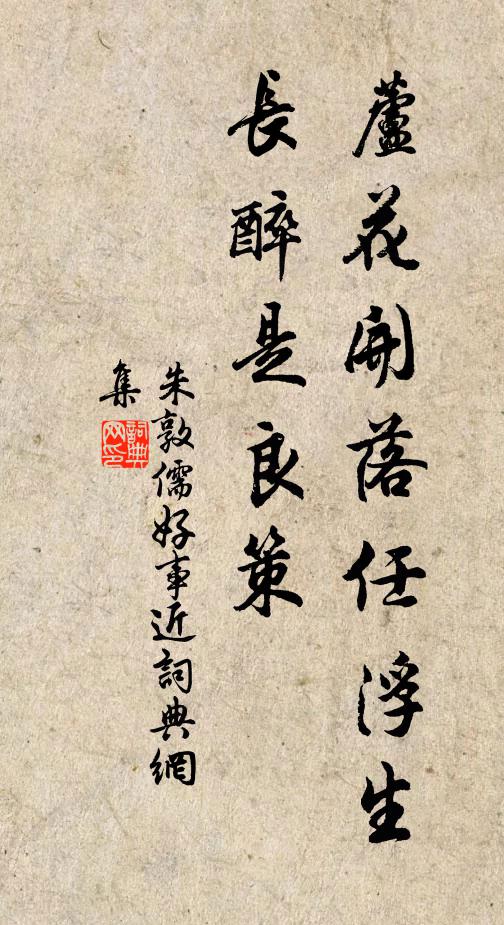 蘆花開落任浮生
長醉是良策
朱敦儒好事近詞典網
集
詞典網印